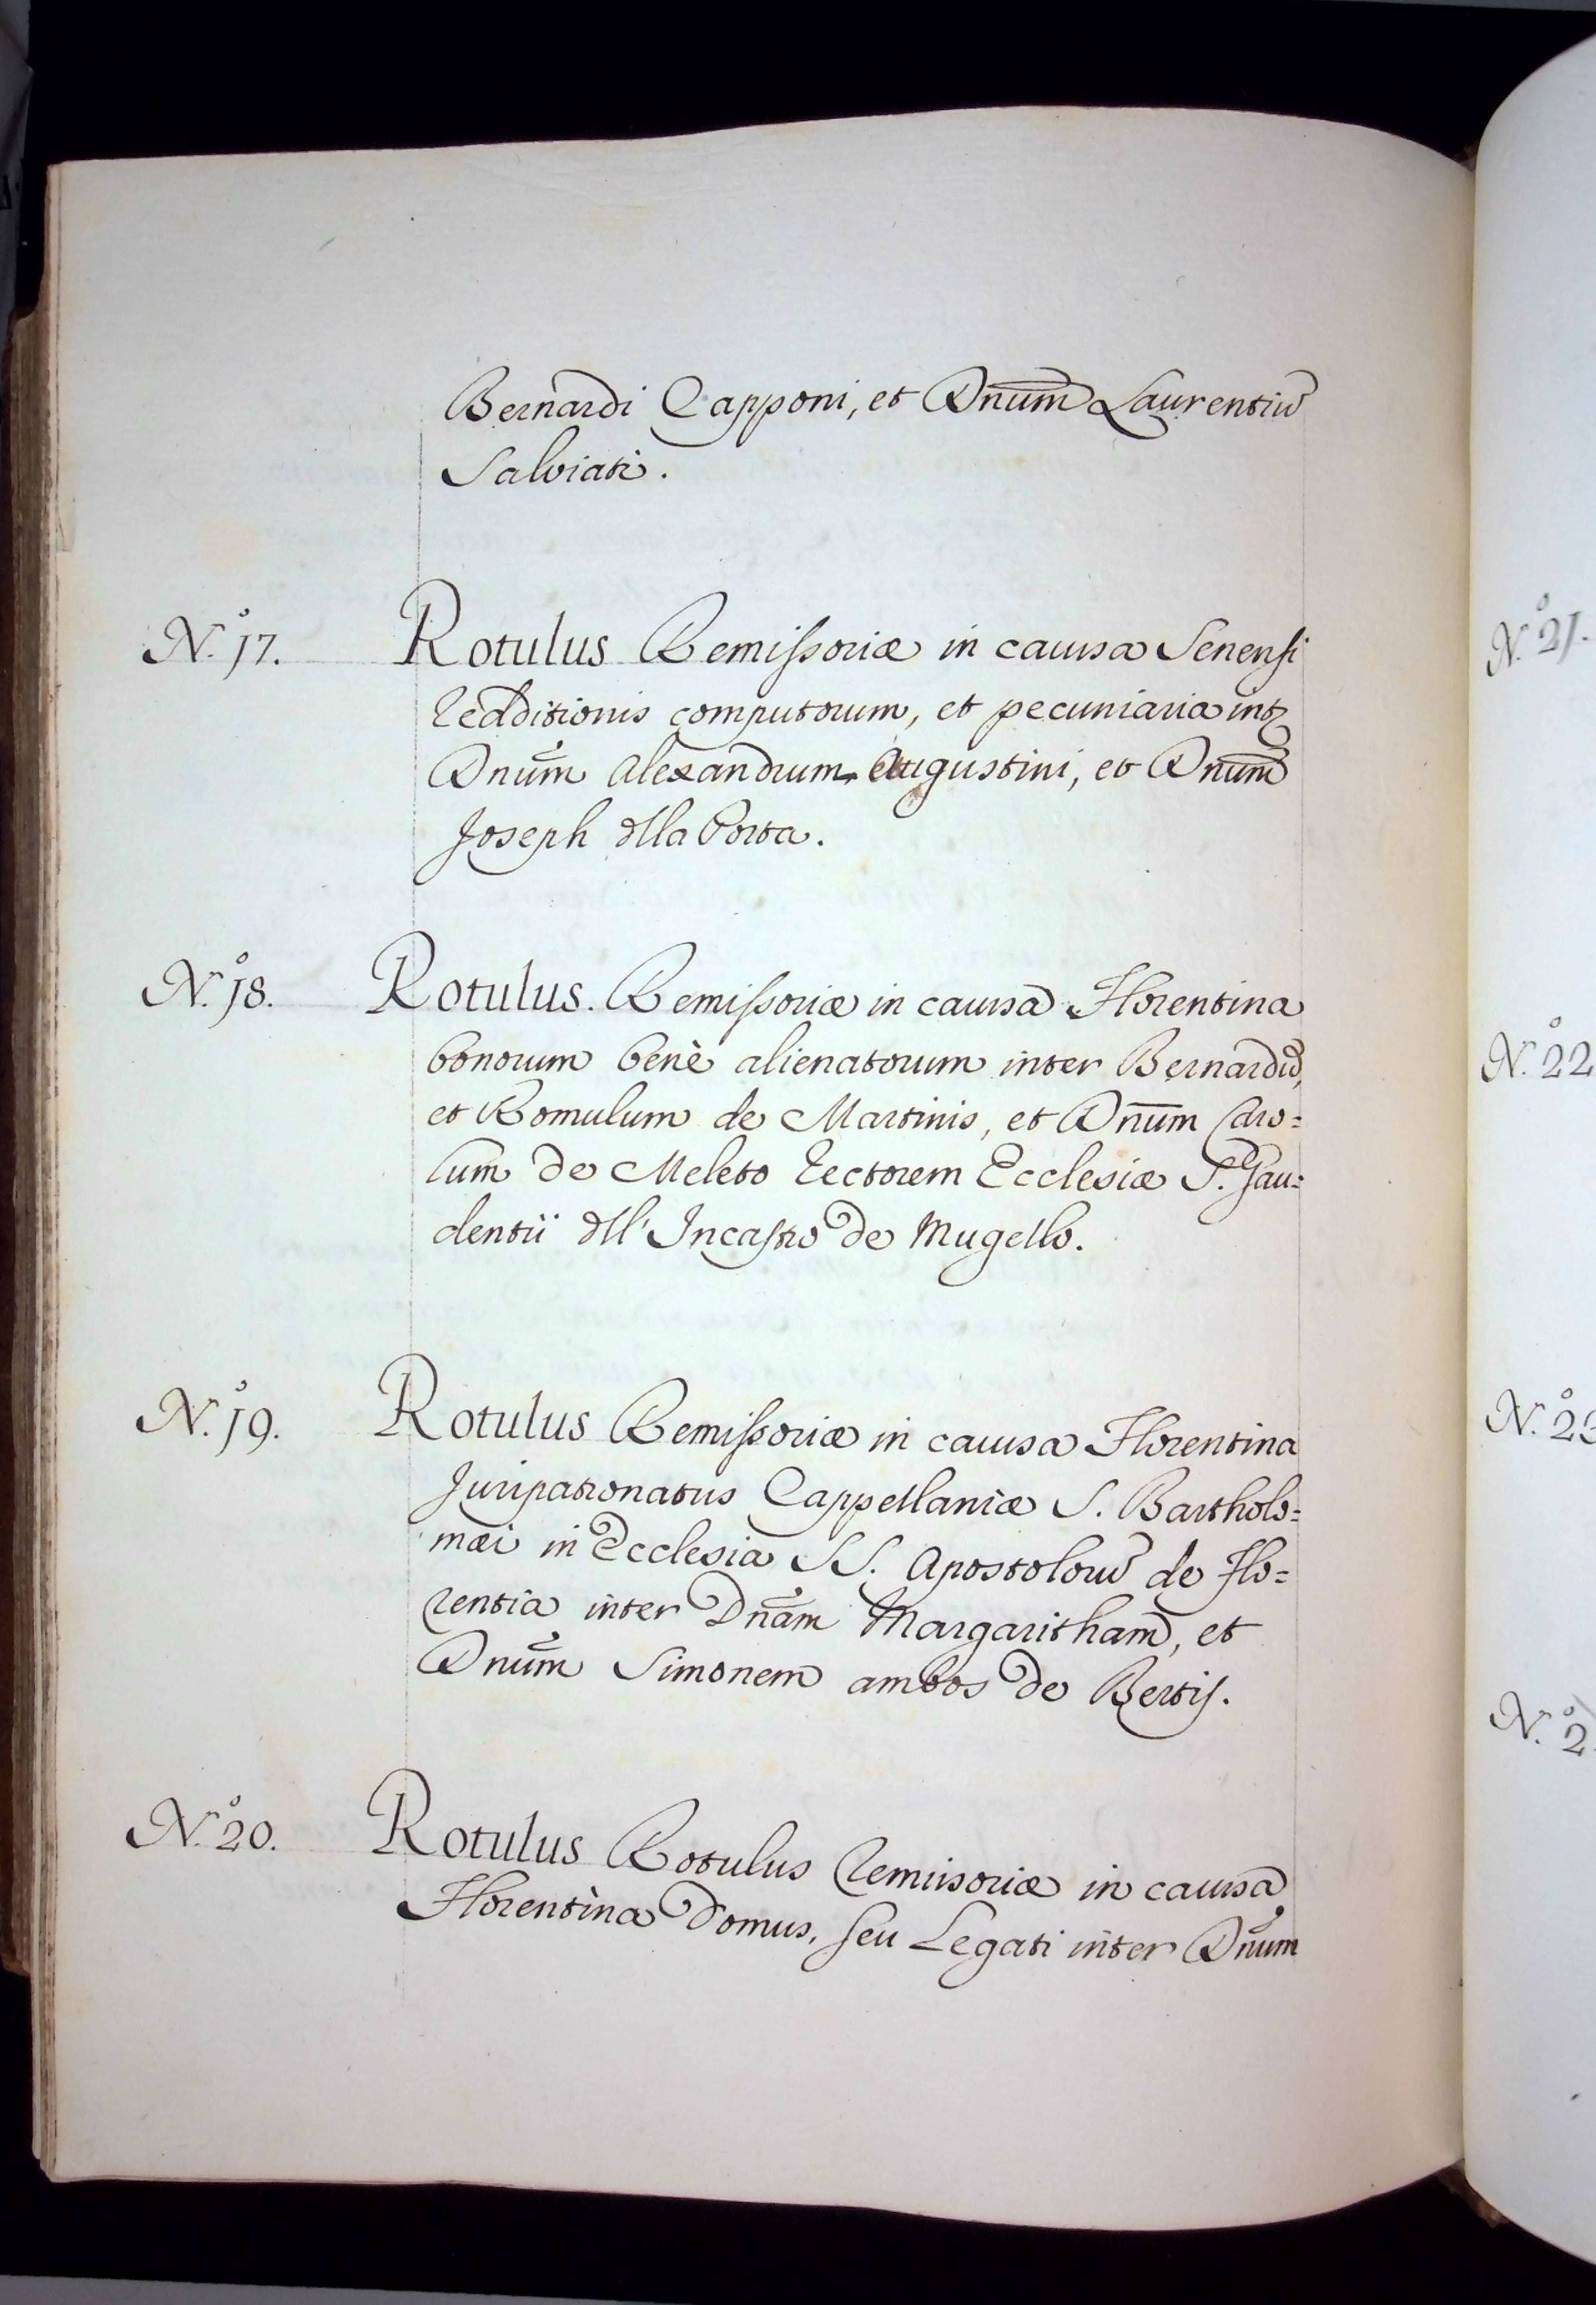 Bernardi Capponi, et Dnum̄ Laurentiū
Salviati.
N.° 17. Rotulus Remissoriæ in causa Senensi
redditionis computorum, et pecuniaria intꝫ
Dnum̄ Alexandrum Augustini, et Dnum̄
Joseph dlla Porta.
N.° 18. Rotulus. Remissoriæ in causa Florentina
bonorum benè alienatorum inter Bernardū,
et Romulum de Martinis, et Dnūm Caro=
lum de Meleto Rectorem Ecclesiæ S. Gau=
dentii dll' Incastro de Mugello.
N.° 19. Rotulus Remissoriæ in causa Florentina
Juripatronatus Cappellaniæ S. Bartholo=
mæi in Ecclesia SS. Apostoloruū de Flo=
rentia inter Dnām Margaritham, et
Dnum̄ Simonem ambos de Bertis.
N.° 20. Rotulus Rotulus Remissoriæ in causa
Florentina Domus, seu Legati inter Dnūm
N.° 21.
N.° 22
N.° 23
N.° 2